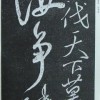 伐天下莫
汝争